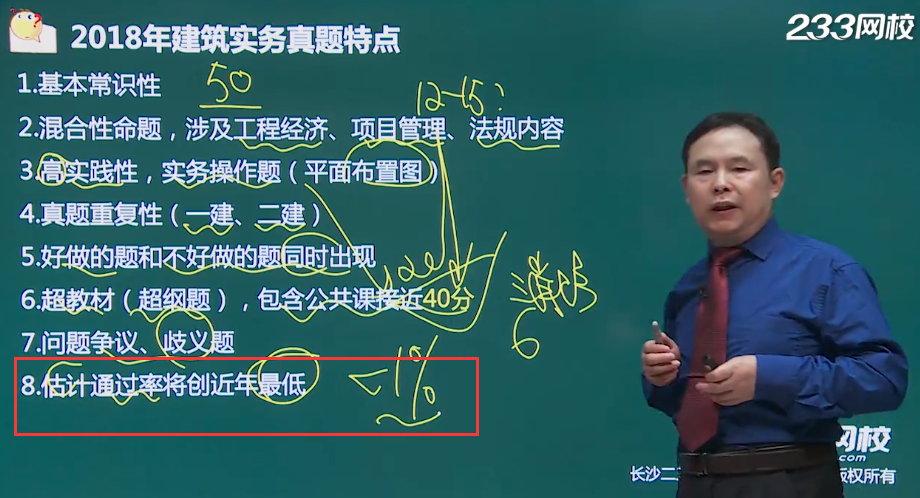 2018年建筑实务真题特点
233网校
1.基本常识性
50
12-15?
2.混合性命题，涉及工程经济、项目管理、法规内容
3.高实践性，实务操作题（平面布置图）
4.真题重复性（一建、二建）
5.好做的题和不好做的题同时出现
6.超教材（超纲题），包含公共课接近40分
6
7.问题争议、歧义题
8.估计通过率将创近年最低
<1%
网校
.com
长沙二
版权所有